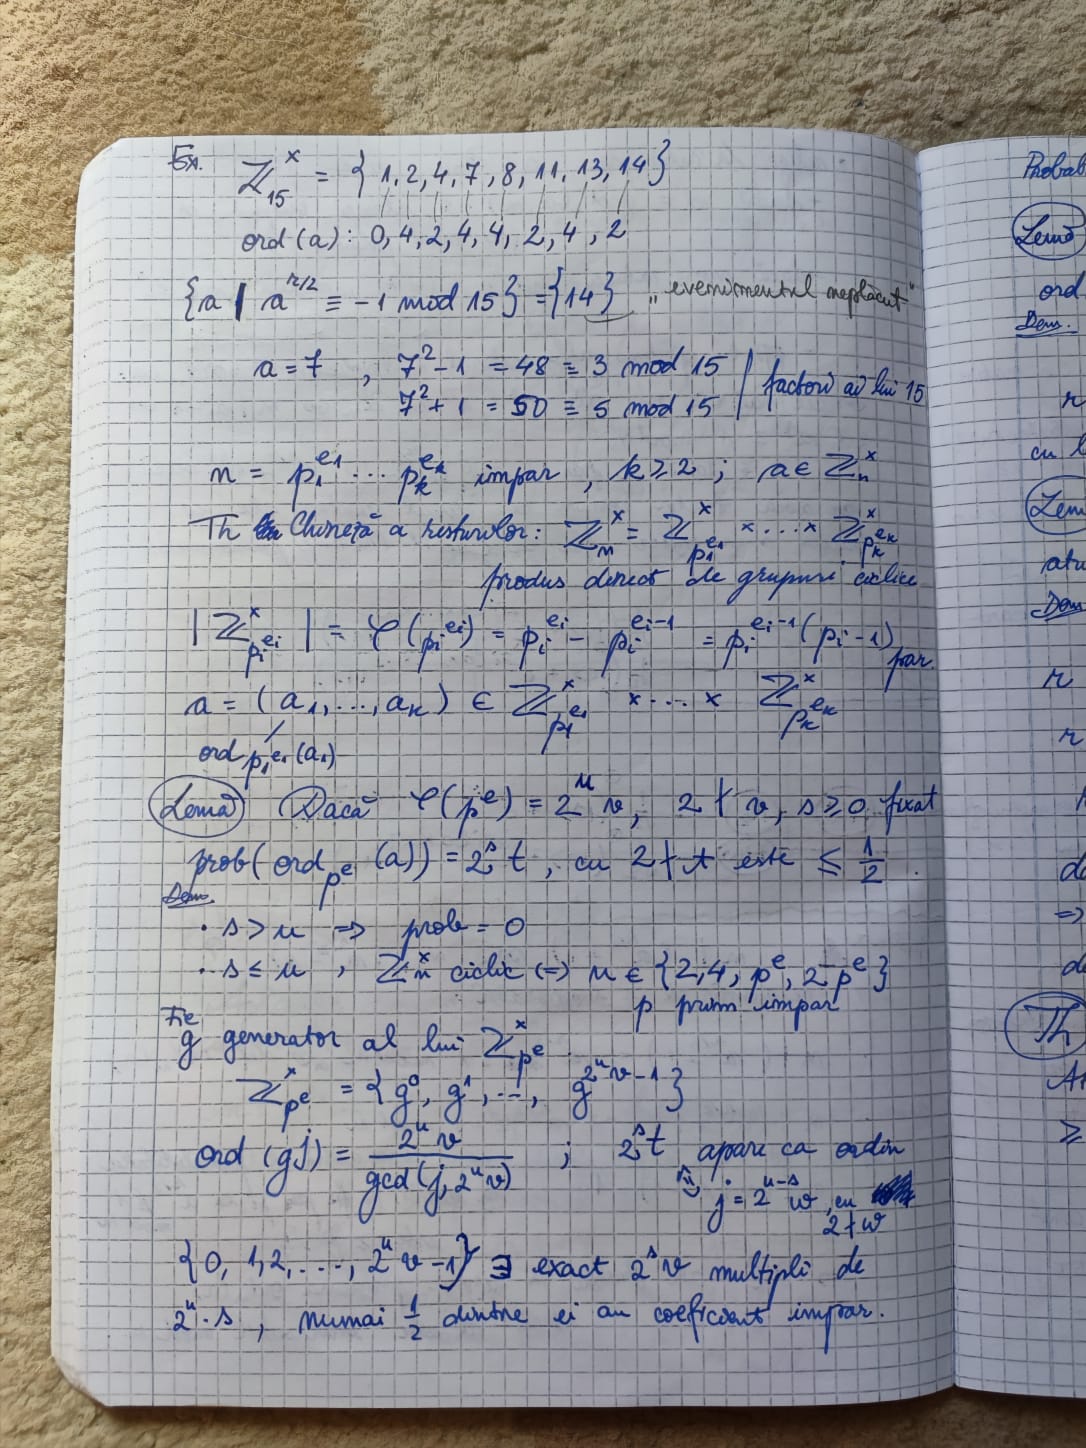 Ex. Z₁₅ˣ = {1, 2, 4, 7, 8, 11, 13, 14}
ord(a): 0, 4, 2, 4, 4, 2, 4, 2
{a | a^{r/2} ≡ -1 mod 15} = {14} „evenimentul neplăcut"
a = 7, 7² - 1 = 48 ≡ 3 mod 15
7² + 1 = 50 ≡ 5 mod 15 | factori ai lui 15
n = p₁^{e₁} ... p_k^{e_k} impar, k ≥ 2; a ∈ Z_nˣ
Th Chineză a resturilor: Z_nˣ = Z_{p₁^{e₁}}ˣ × ... × Z_{p_k^{e_k}}ˣ
produs direct de grupuri ciclice
|Z_{p_i^{e_i}}ˣ| = φ(p_i^{e_i}) = p_i^{e_i} - p_i^{e_i-1} = p_i^{e_i-1}(p_i-1) par.
a = (a₁, ..., a_k) ∈ Z_{p₁^{e₁}}ˣ × ... × Z_{p_k^{e_k}}ˣ
ord p₁^{e₁}(a₁)
Lemă Dacă φ(p^e) = 2^u v, 2 ∤ v, s ≥ 0 fixat
prob(ord_{p^e}(a)) = 2^s t, cu 2 ∤ t este ≤ 1/2.
Dem.
· s > u ⇒ prob = 0
· s ≤ u, Z_nˣ ciclic ⇔ n ∈ {2, 4, p^e, 2·p^e}
p prim impar
Fie
g generator al lui Z_{p^e}ˣ
Z_{p^e}ˣ = {g⁰, g¹, ..., g^{2^u v-1}}
ord(gj) = 2^u v / gcd(j, 2^u v) ; 2^s t apare ca ordin
⇔ j = 2^{u-s} w, cu
2 ∤ w
{0, 1, 2, ..., 2^u v-1} ∋ exact 2^s v multipli de
2^u · s, numai 1/2 dintre ei au coeficient impar.
Probab
Lemă
ord
Dem.
r
cu
Lem
atu
Dem
r
r
⇒
Th
≥